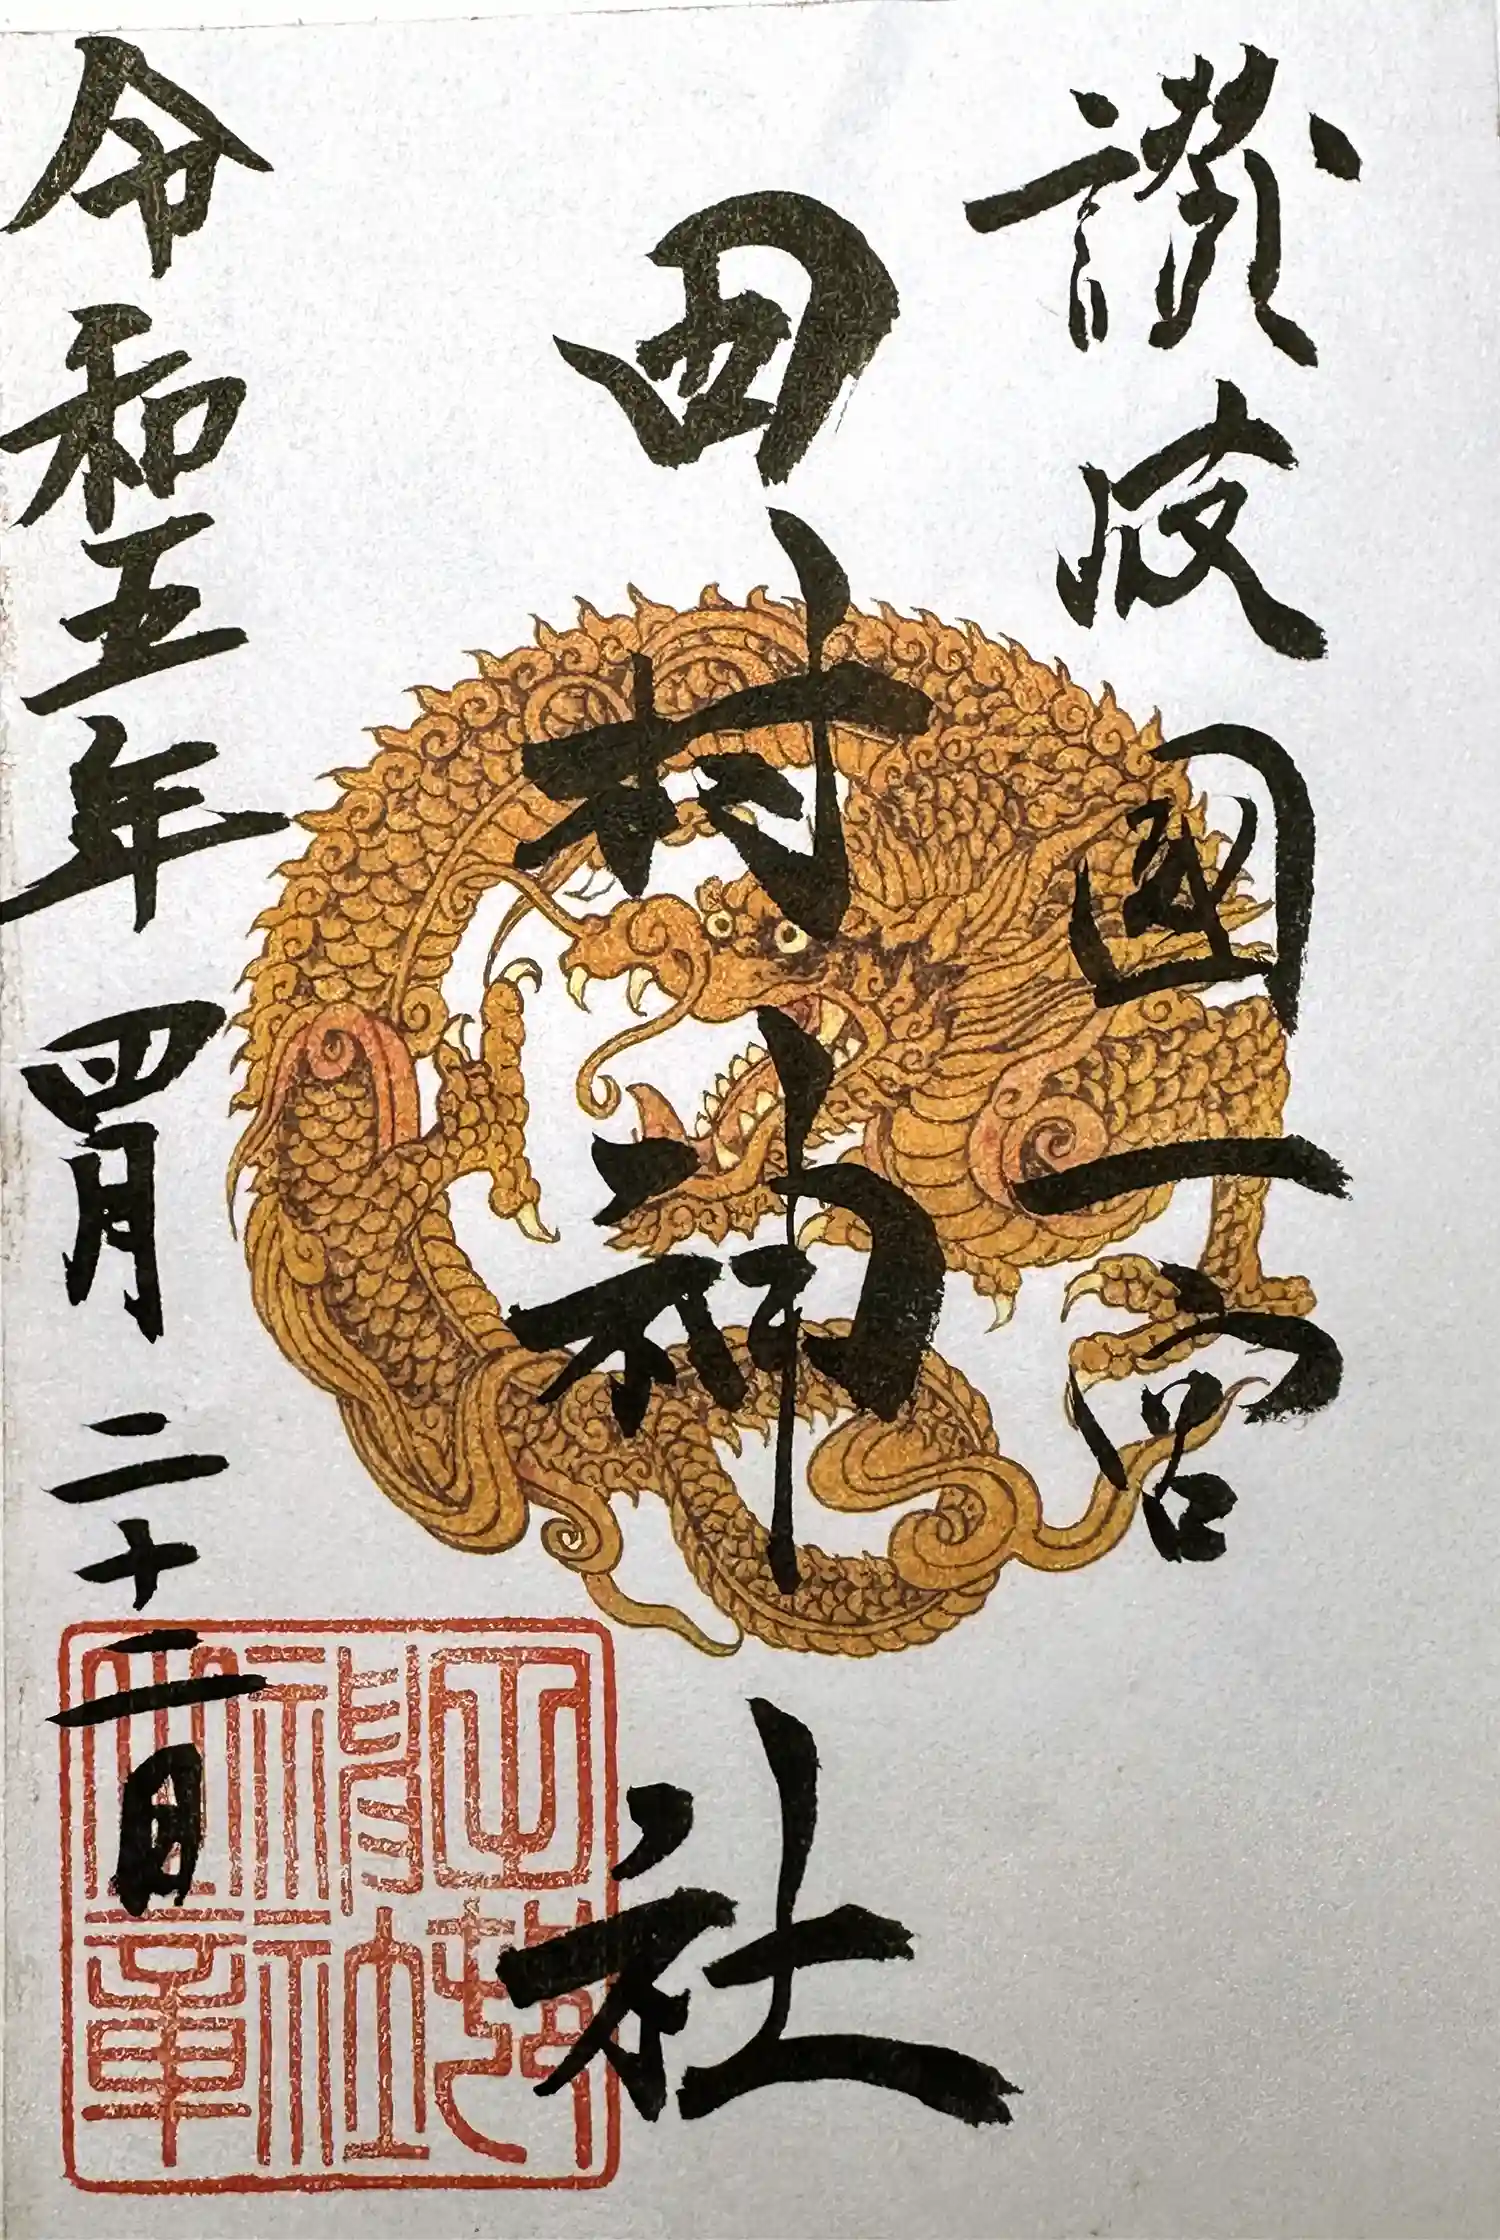 讃岐國一宮
田村神社
令和五年四月二十二日
田村
神社
之章